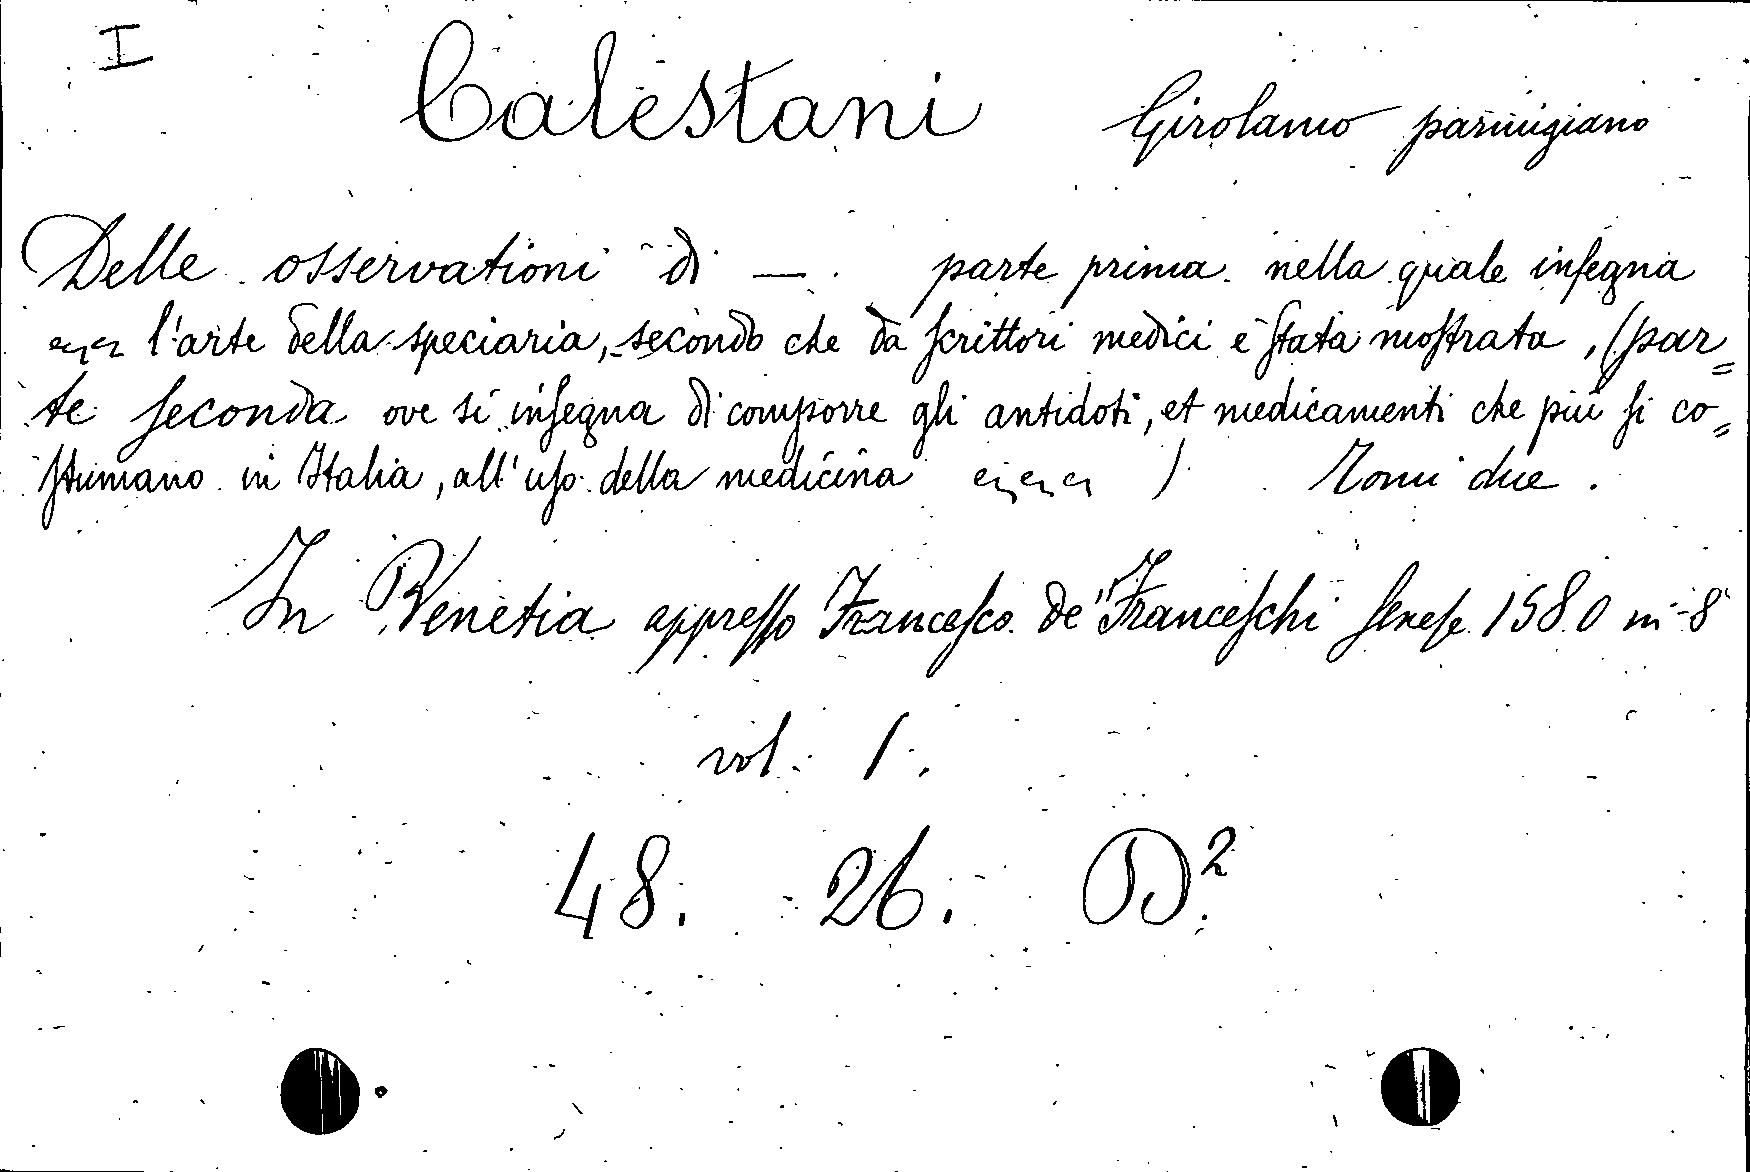 I
Calestani Girolamo parmigiano
Delle osservationi di — . parte prima nella quale inſegna
l'arte della speciaria, secondo che da ſcrittori medici è ſtata moſtrata, (par=
te ſeconda ove si inſegna di comporre gli antidoti, et medicamenti che più ſi co=
ſtumano in Italia, all'uſo della medicina ) Tomi due.
In Venetia appreſſo Franceſco de' Franceſchi ſeneſe 1580 in-8
vol. 1.
48. 26. D².